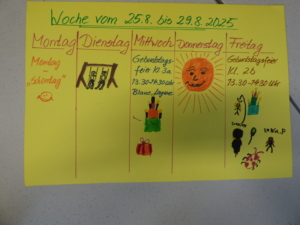 Woche vom 25.8. bis 29.8.2025
Montag Dienstag Mittwoch Donnerstag Freitag
Montag
-
"Schontag"
Geburtstags
feier Kl. 3a
13.30-14.30 Uhr
Blaue
Geburtstagsfeier
Kl. 2b
13.30-14.30 Uhr